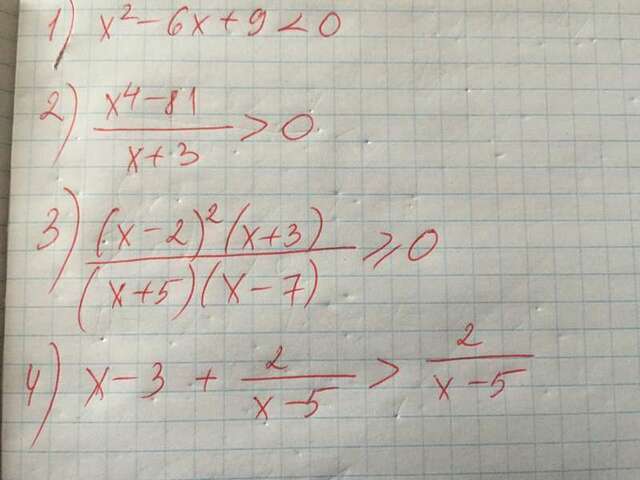 1) x² - 6x + 9 < 0
2) (x⁴ - 81)/(x + 3) > 0
3) ((x - 2)²(x + 3))/((x + 5)(x - 7)) ≥ 0
4) x - 3 + 2/(x - 5) > 2/(x - 5)